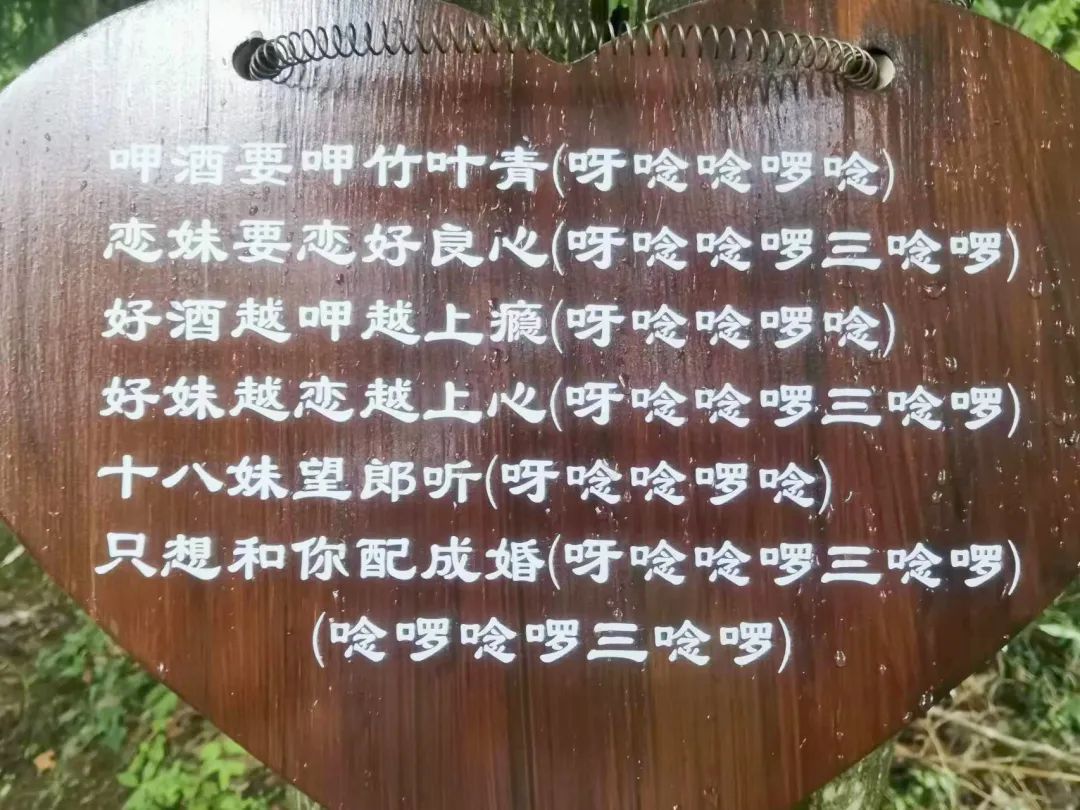 呷酒要呷竹叶青(呀唸唸啰唸)
恋妹要恋好良心(呀唸唸啰三唸啰)
好酒越呷越上瘾(呀唸唸啰唸)
好妹越恋越上心(呀唸唸啰三唸啰)
十八妹望郎听(呀唸唸啰唸)
只想和你配成婚(呀唸唸啰三唸啰)
(唸啰唸啰三唸啰)